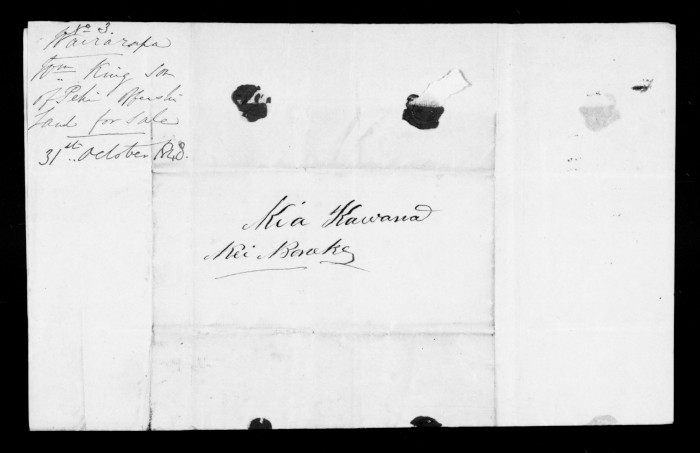 No 3.
Wairarapa
Wm King son
of Peki offers his
Land for sale
31st October 1848.
Kia Kawana
Kei Poneke